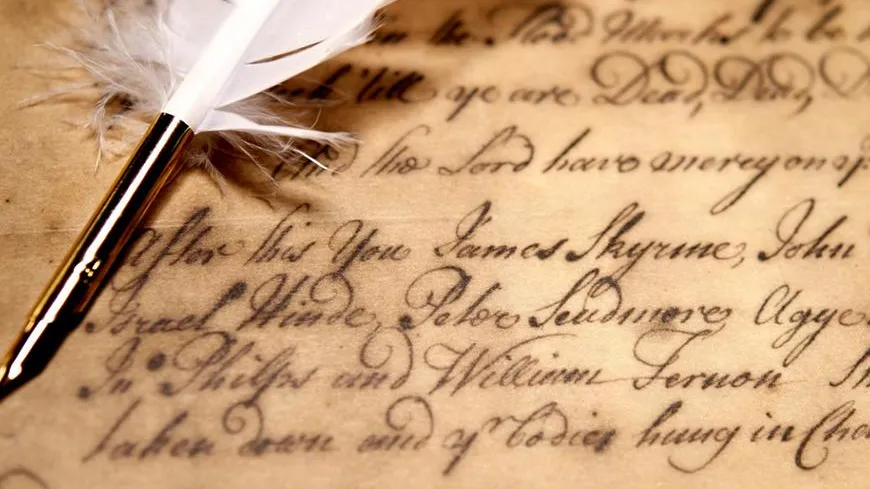 in the Flood Marks to be
'till ye are Dead, Dead,
And the Lord have mercy on yr
After this You James Skyrme, John
Israel Hinde, Peter Scudmore Agge
Jno Philps and William Fernon Sh
taken down and yr bodies hung in Cha